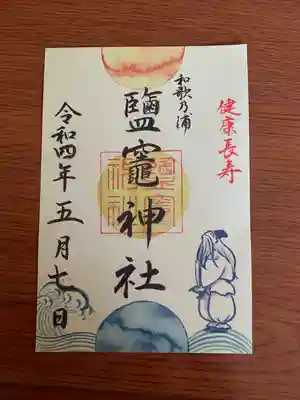 健康長寿
和歌乃浦
鹽竈神社
令和四年五月七日